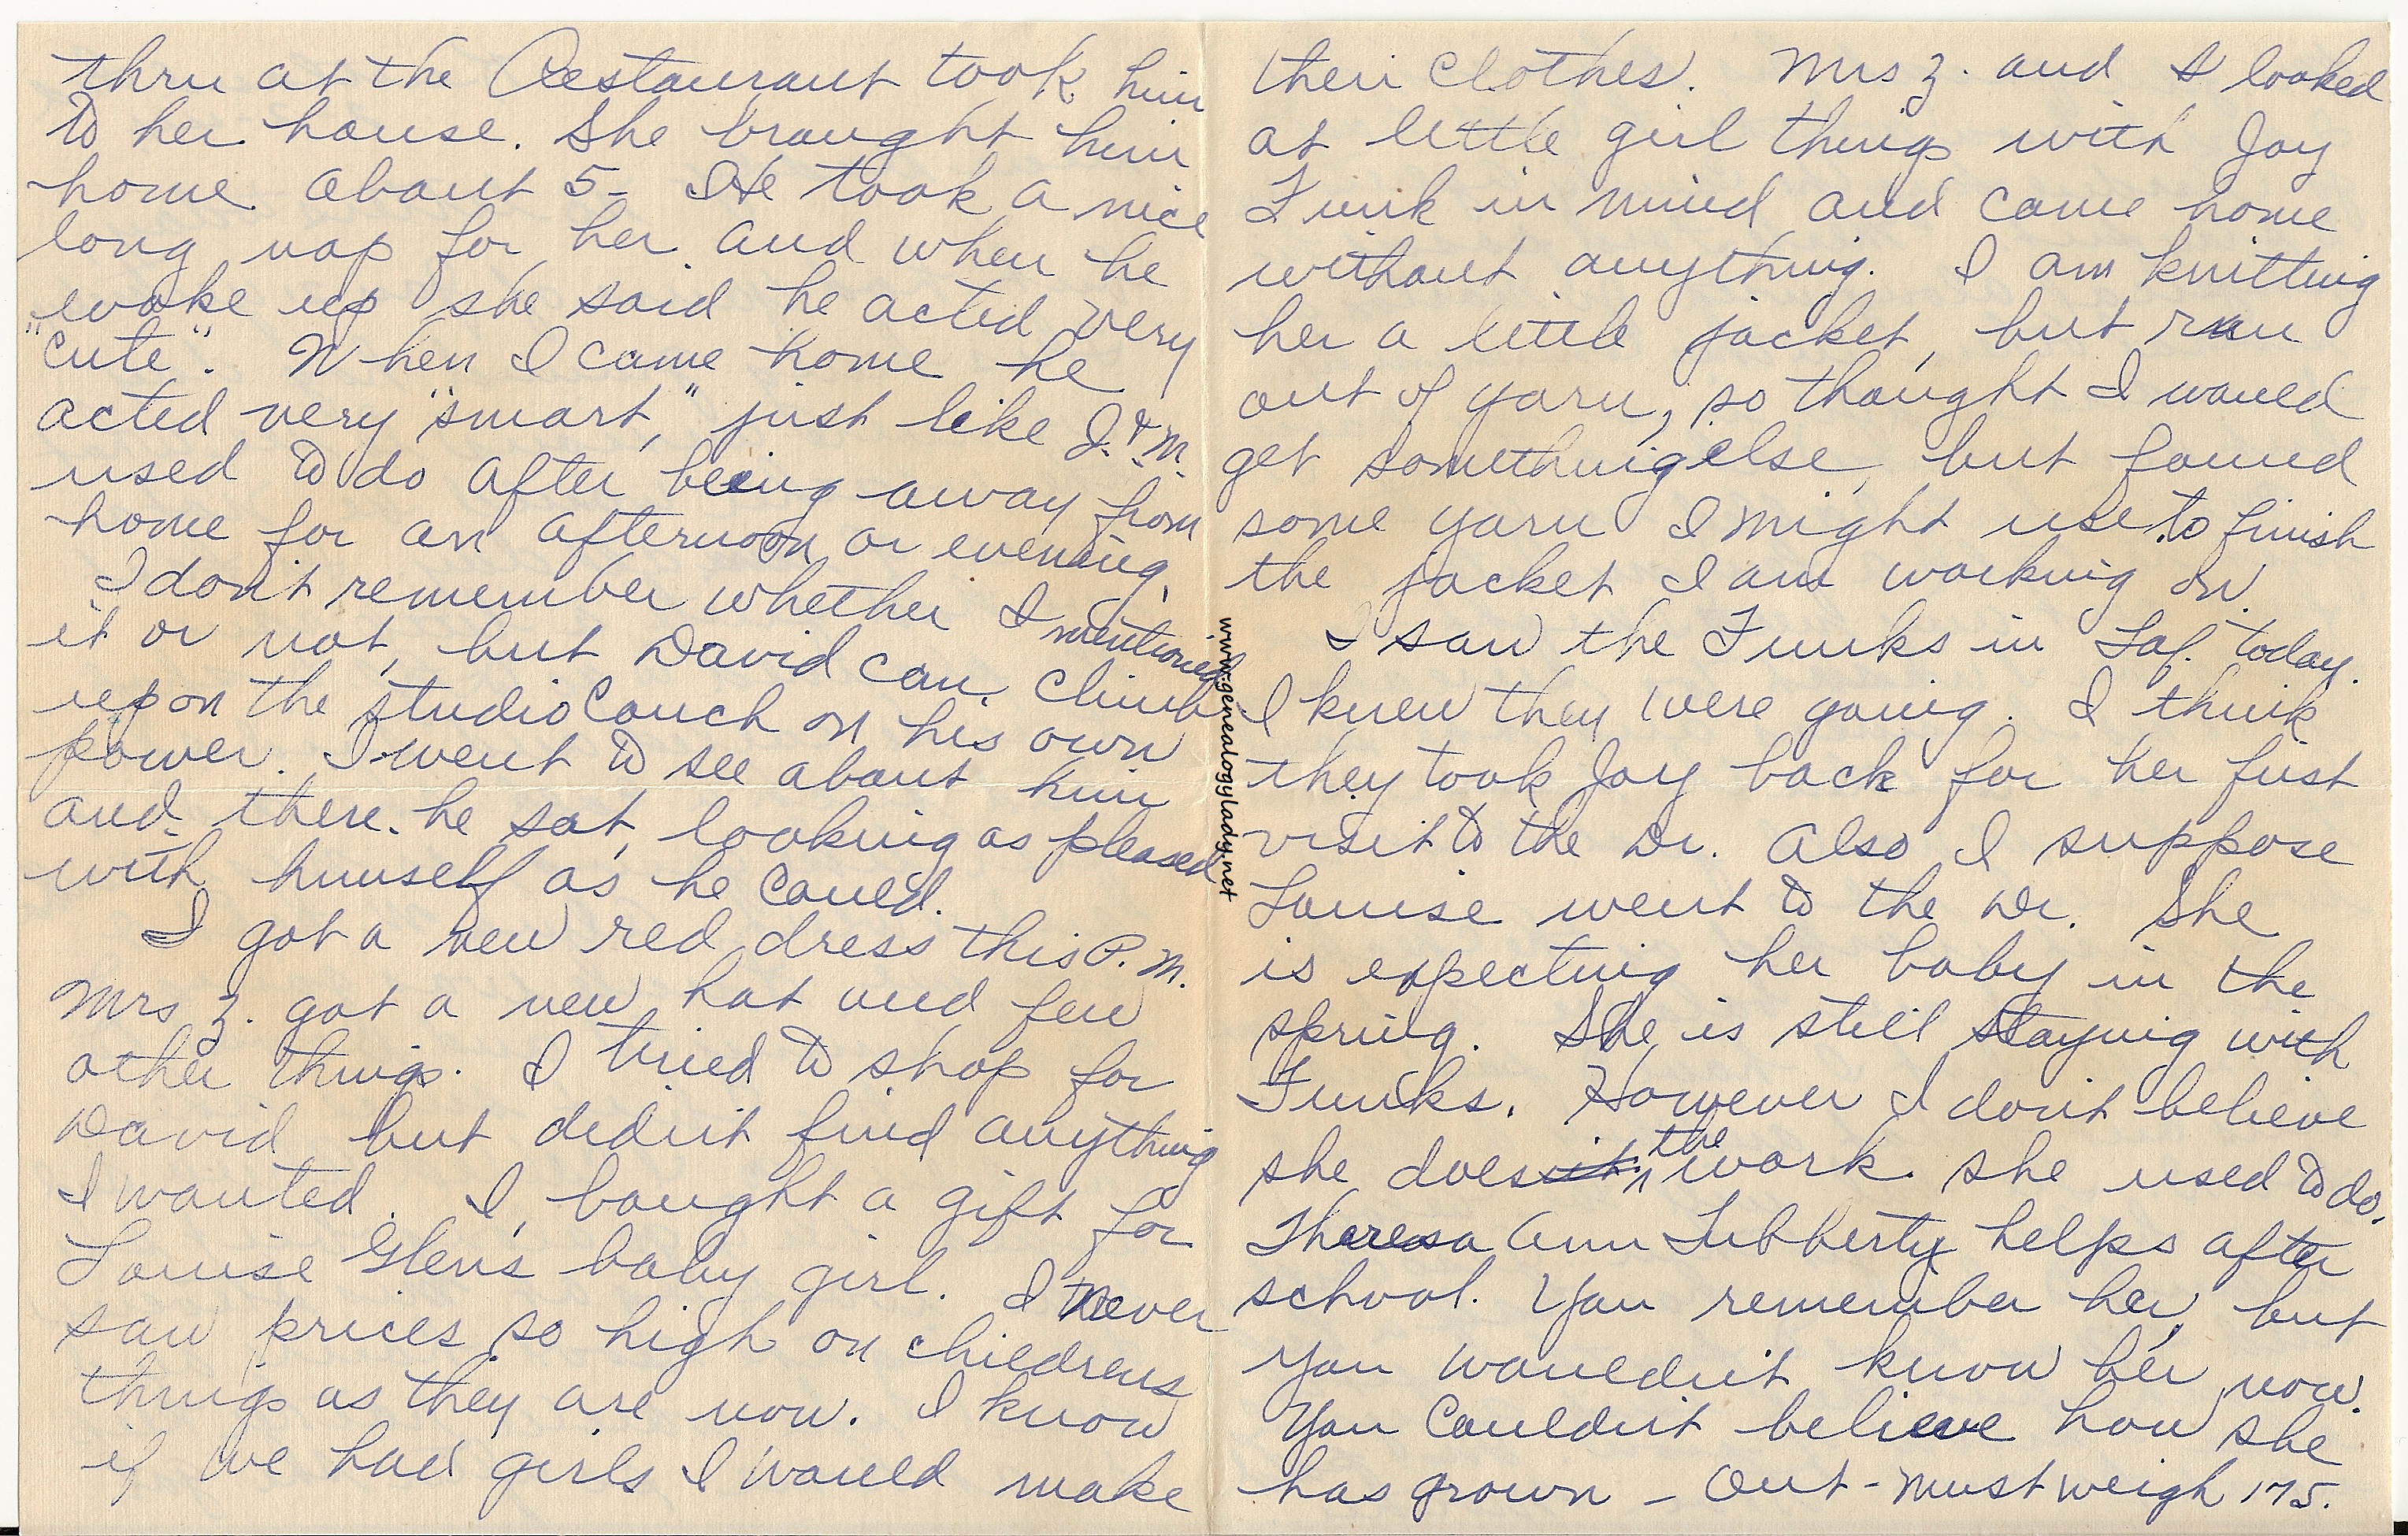 thru at the Restaurant took him
to her house. She brought him
home about 5- He took a nice
long nap for her and when he
woke up she said he acted very
"cute". When I came home he
acted very "smart," just like J. & M.
used to do after being away from
home for an afternoon or evening.
I don't remember whether I mentioned
it or not, but David can climb
up on the studio Couch on his own
power. I went to see about him
and there he sat, looking as pleased
with himself as he could.
I got a new red dress this P.M.
Mrs Z. got a new hat and few
other things. I tried to shop for
David but didn't find anything
I wanted. I bought a gift for
Louise Glen's baby girl. I never
saw prices so high on childrens
things as they are now. I know
if we had girls I would make
their clothes. Mrs Z. and I looked
at little girl things with Joy
Funk in mind and came home
without anything. I am knitting
her a little jacket, but run
out of yarn, so thought I would
get something else, but found
some yarn I might use to finish
the jacket I am working on.
I saw the Funks in Laf. today.
I knew they were going. I think
they took Joy back for her first
visit to the Dr. Also I suppose
Louise went to the Dr. She
is expecting her baby in the
spring. She is still staying with
Funks. However I don't believe
she does the work she used to do.
Theresa Ann Lubberty helps after
school. You remember her, but
you wouldn't know her now.
You Couldn't believe how she
has grown - Out - must weigh 175.
www.genealogylady.net